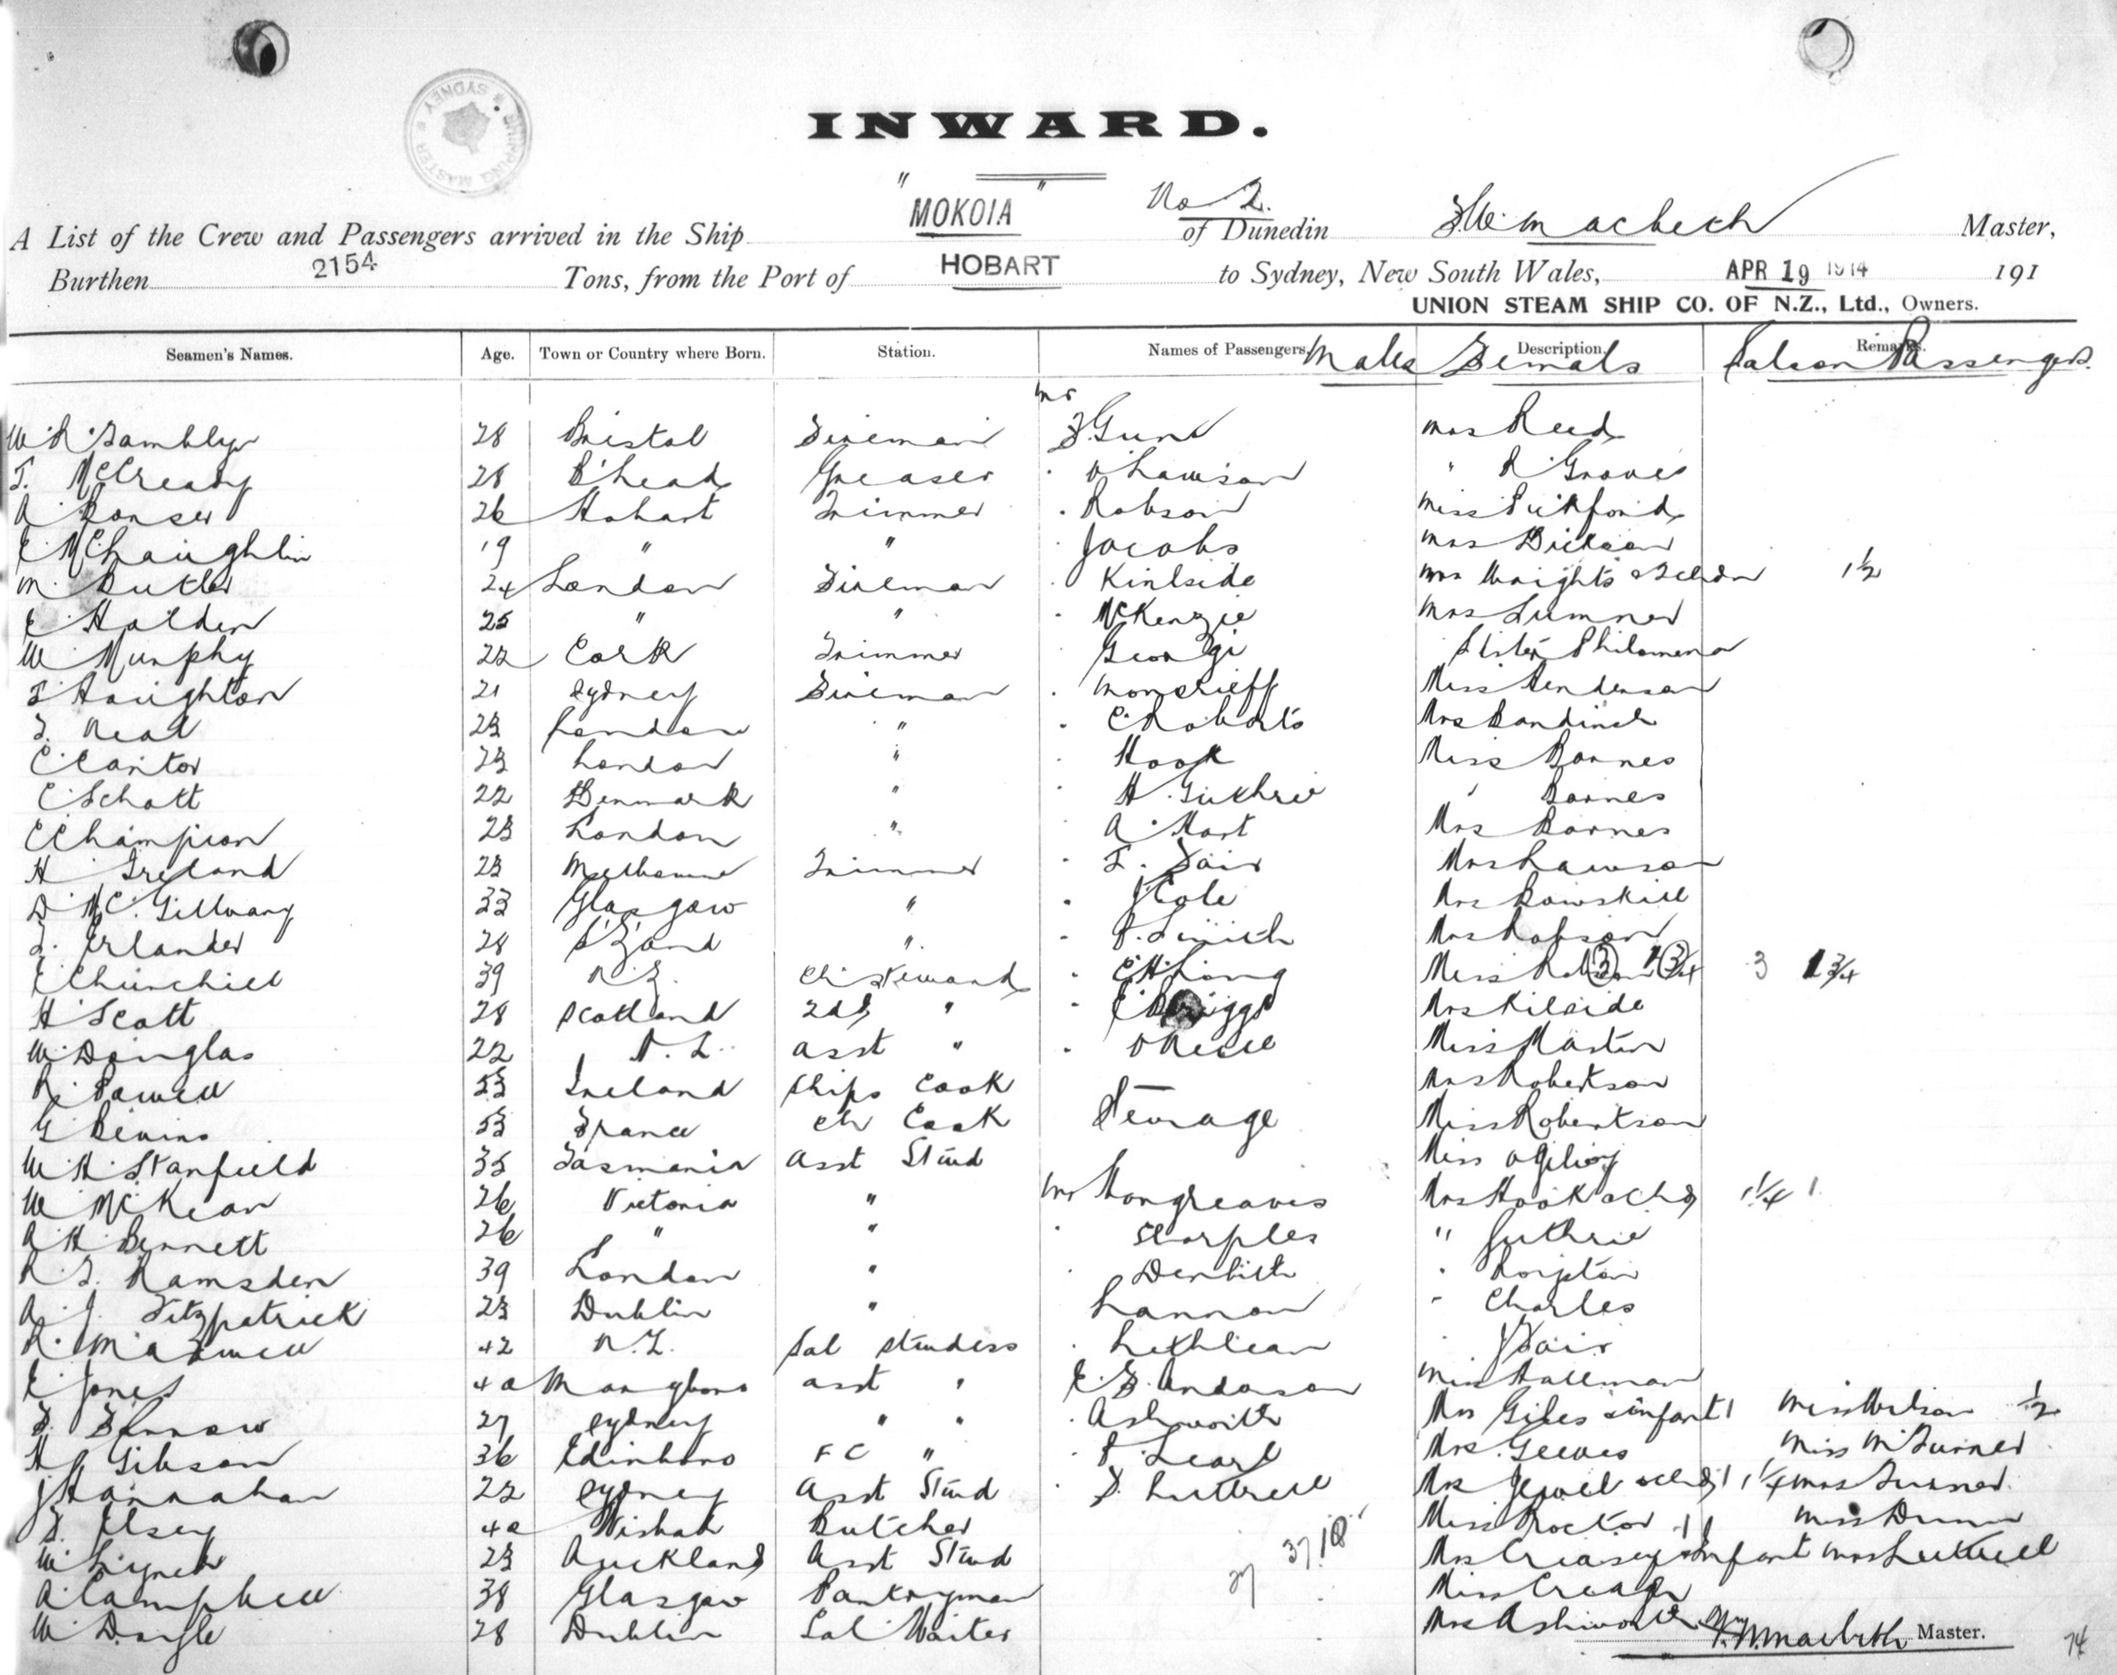 SHIPPING MASTER SYDNEY
INWARD.
" MOKOIA " No 2.
A List of the Crew and Passengers arrived in the Ship MOKOIA of Dunedin Macbeth Master,
Burthen 2154 Tons, from the Port of HOBART to Sydney, New South Wales, APR 19 1914 191
UNION STEAM SHIP CO. OF N.Z., Ltd., Owners.
Seamen's Names. Age. Town or Country where Born. Station. Names of Passengers. Males Description. Females Remarks. Saloon Passengers.
Mr
W. R. Tamblyn 28 Bristol Fireman F Gunn Mrs Reed
T. McCready 28 B'head Greaser " Lawson " R Groves
A Bonser 26 Hobart Trimmer " Robson Miss Pickford
E McLaughlin 19 " " " Jacobs Mrs Dickson
M. Butler 24 London Fireman " Kinlside Mrs Wright & 1½
E Holden 25 " " " McKenzie Mrs Sumner
W Murphy 22 Cork Trimmer Georgi Sister Philomena
T Haughton 21 Sydney Fireman " Moncrieff Miss Henderson
T. Neal 23 London " " C. Roberts Mrs
C Cantor 23 London " " Hook Miss Barnes
C Schott 22 Denmark " " H. Guthrie " Barnes
C Champion 23 London " " A. Hart Mrs Barnes
H Ireland 23 Melbourne Trimmer " T. Fair Mrs Lawson
D McGillvary 33 Glasgow " " J Cole Mrs Bowskill
F. Erlander 28 " " Smith Mrs Robson
E Churchill 39 N.Z. Ch Steward " C H Long Miss Robson 3 1¾
H Scott 28 Scotland 2nd " " C Briggs Mrs Kilside
W. Douglas 22 N.Z. Asst " " Miss Martin
R. Powell 53 Ireland Ships Cook Mrs Robertson
G Bevins 53 France Ch Cook Steerage Miss Robertson
W. H. Stanfield 35 Tasmania Asst Stwd Miss Ogilvy
W McKean 26 Victoria " Mr Hargreaves Mrs Hook & Chd 1¼ 1
A H. Bennett 26 " " " Sharples " Guthrie
R. T. Ramsden 39 London " " Denbith " Royston
A. J. Fitzpatrick 23 Dublin " Lannon " Charles
R. Maxwell 42 N.Z. Sal Stwdess " Lethlean " J Fair
E Jones 40 Asst " E. F. Anderson Miss Hallman
F. 27 Sydney " " " Ashworth Mrs Giles & infant 1 Miss Wilson ½
H Gibson 36 Edinboro F C " " Searl Mrs Geeves Miss M Turner
J Hannahan 22 Sydney Asst Stwd " F. Luttrell Mrs Jewel & chd 1 1¼ Mrs Turner
F. Elsey 40 Butcher 37 18 Miss Proctor Miss Dunn
W Lynch 23 Auckland Asst Stwd 37 Mrs Creasey & infant Mrs Luttrell
A Campbell 38 Glasgow Pantryman Miss
W Doyle 28 Dublin Sal Waiter Mrs Ashworth Macbeth Master.
74